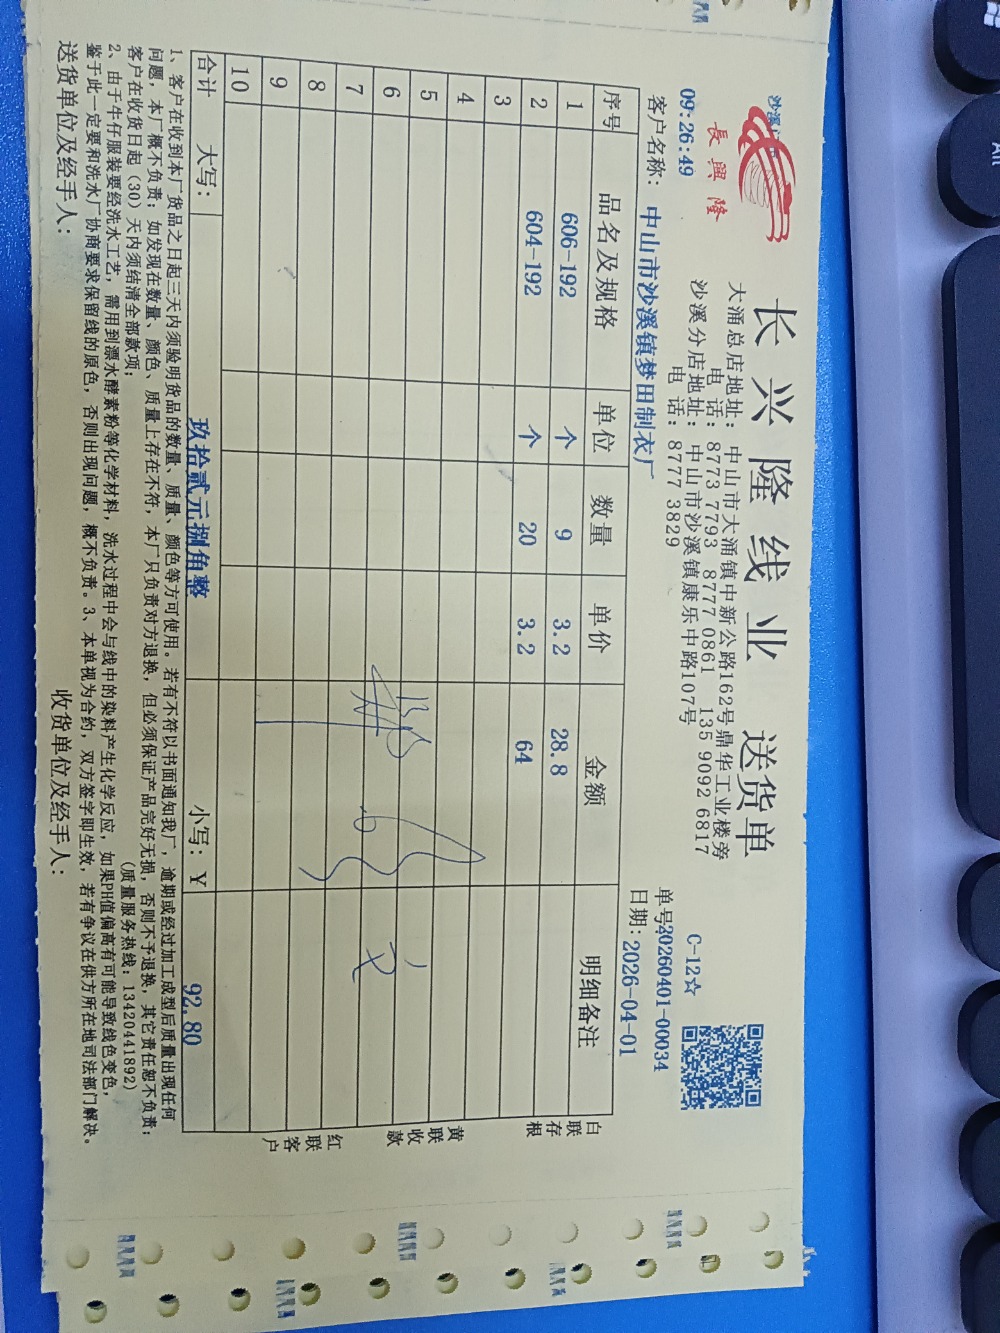 长兴隆线业 送货单
沙溪
長興隆
大涌总店地址：中山市大涌镇中新公路162号鼎华工业楼旁
电 话：8773 7793 8777 0861 135 9092 6817
沙溪分店地址：中山市沙溪镇康乐中路107号
电 话：8777 3829
C-12☆
09:26:49
单号20260401-00034
客户名称：中山市沙溪镇梦田制衣厂
日期：2026-04-01
序号 品名及规格 单位 数量 单价 金额 明细备注
1 606-192 个 9 3.2 28.8
2 604-192 个 20 3.2 64
3
4
5
6
7
8
9
10
合计 大写： 玖拾贰元捌角整 小写：￥ 92.80
白联存根
黄联收款
红联客户
1、客户在收到本厂货品之日起三天内须验明货品的数量、质量、颜色等方可使用。若有不符以书面通知我厂，逾期或经过加工成型后质量出现任何
问题，本厂概不负责；如发现在数量、颜色、质量上存在不符，本厂只负责对方退换，但必须保证产品完好无损，否则不予退换，其它责任恕不负责；
客户在收货日起（30）天内须结清全部款项； （质量服务热线：13420441892）
2、由于牛仔服装要经洗水工艺，需用到漂水酵素粉等化学材料，洗水过程中会与线中的染料产生化学反应，如果PH值偏高有可能导致线色变色，
鉴于此一定要和洗水厂协商要求保留线的原色，否则出现问题，概不负责。3、本单视为合约，双方签字即生效，若有争议在供方所在地司法部门解决。
送货单位及经手人： 收货单位及经手人：